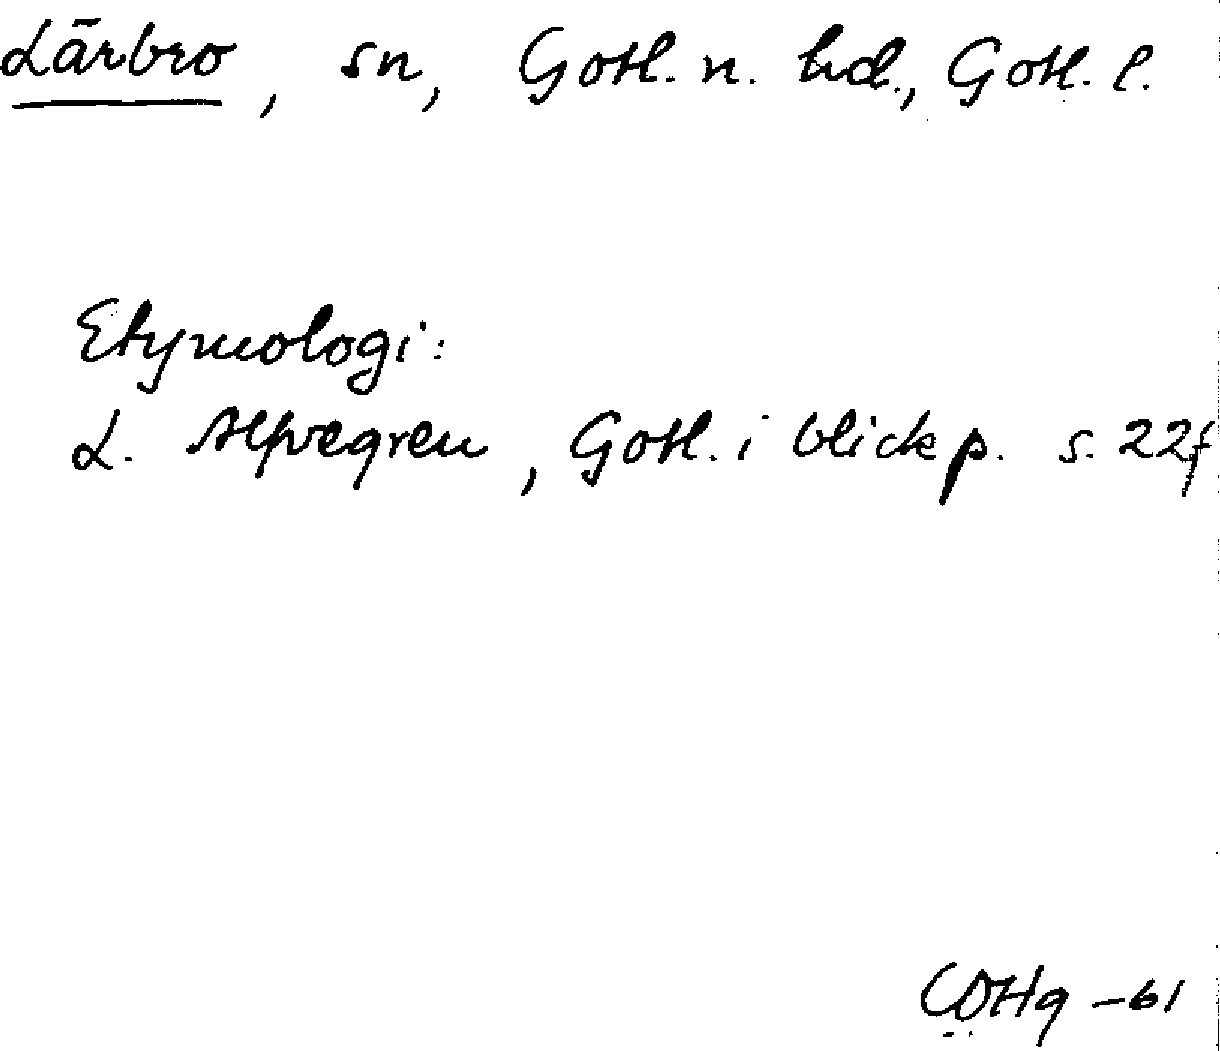 Lärbro, sn, Gotl. n. hd., Gotl. l.
Etymologi:
L. Alfvegren, Gotl. i blickp. s. 22f
CÖHg -61